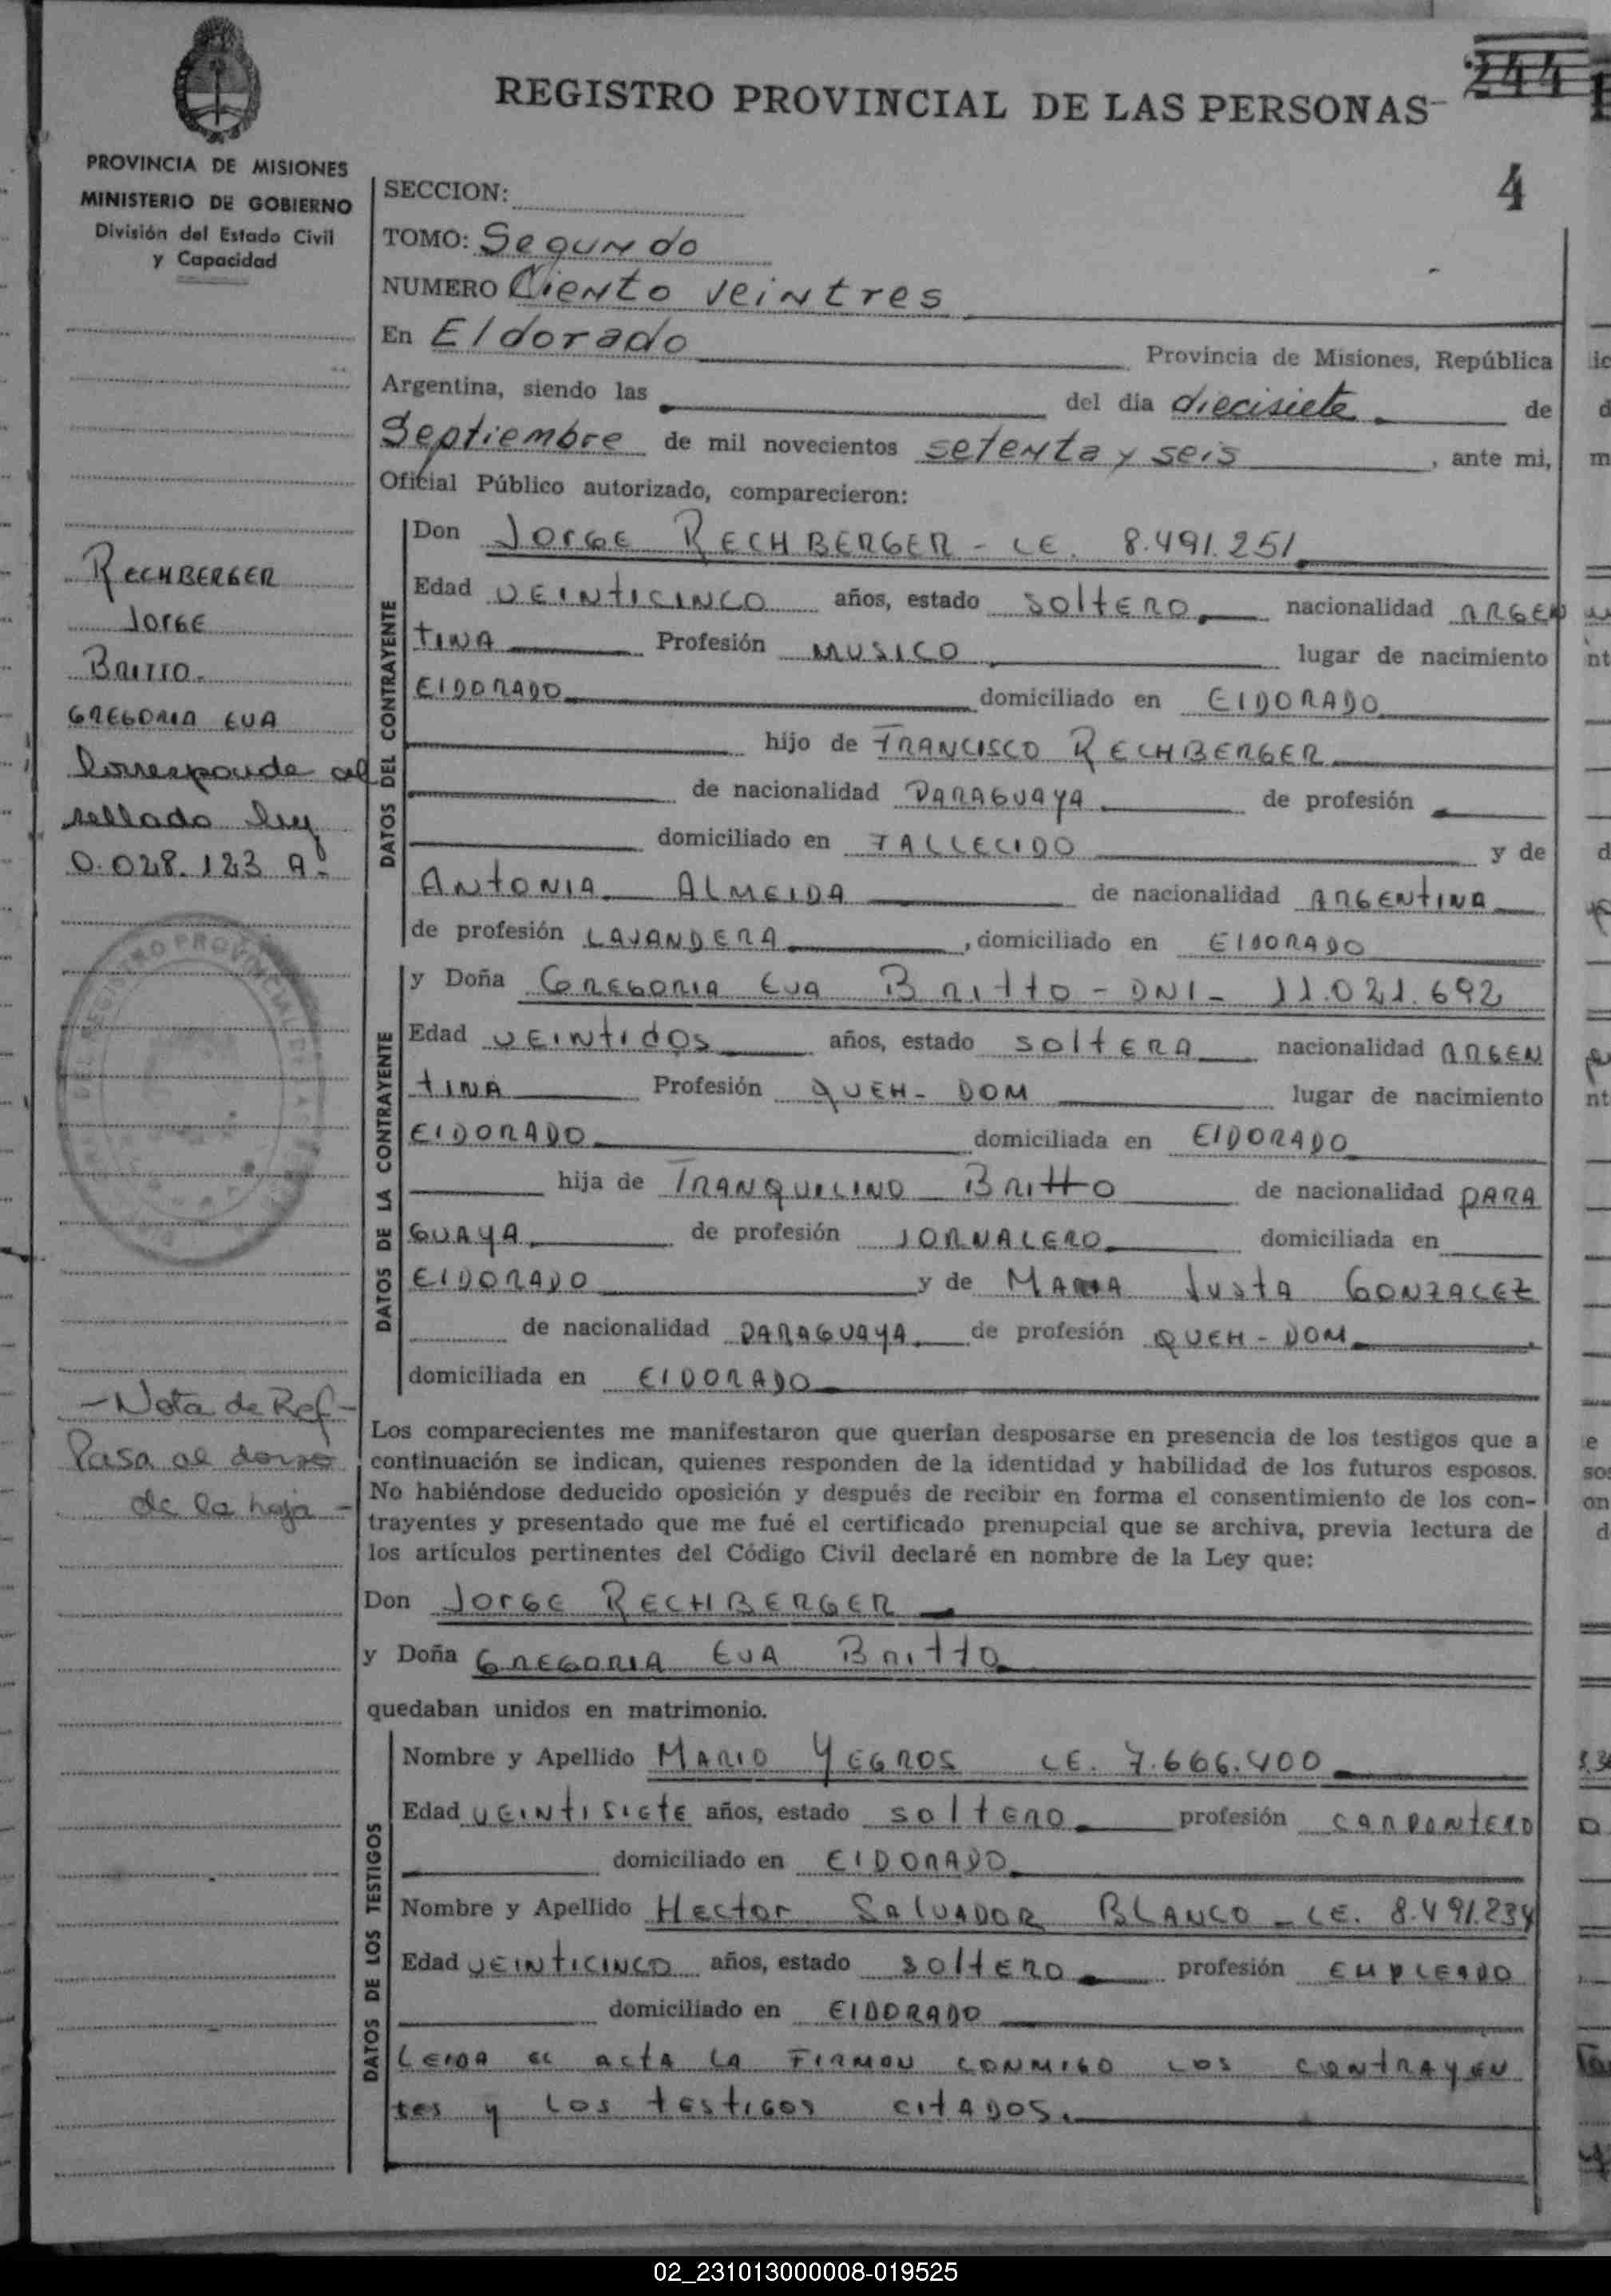 REGISTRO PROVINCIAL DE LAS PERSONAS
244
4
PROVINCIA DE MISIONES
MINISTERIO DE GOBIERNO
División del Estado Civil
y Capacidad
RECHBERGER
JORGE
BRITTO.
GREGORIA EVA
Corresponde al
sellado ley
0.028.123 A.
- Nota de Ref -
Pasa al dorso
de la hoja -
SECCION:
TOMO: Segundo
NUMERO Ciento veintres
En Eldorado Provincia de Misiones, República
Argentina, siendo las del día diecisiete de
Septiembre de mil novecientos setenta y seis, ante mi,
Oficial Público autorizado, comparecieron:
DATOS DEL CONTRAYENTE
Don JORGE RECHBERGER - LE. 8.491.251
Edad VEINTICINCO años, estado SOLTERO nacionalidad ARGEN
TINA Profesión MUSICO lugar de nacimiento
ElDORADO domiciliado en ElDORADO
hijo de FRANCISCO RECHBERGER
de nacionalidad PARAGUAYA de profesión
domiciliado en FALLECIDO y de
ANTONIA ALMEIDA de nacionalidad ARGENTINA
de profesión LAVANDERA, domiciliado en ElDORADO
DATOS DE LA CONTRAYENTE
y Doña GREGORIA EVA BRITTO - DNI - 11.021.692
Edad VEINTIDOS años, estado SOLTERA nacionalidad ARGEN
TINA Profesión QUEH- DOM lugar de nacimiento
ElDORADO domiciliada en ElDORADO
hija de TRANQUILINO BRITTO de nacionalidad PARA
GUAYA de profesión JORNALERO domiciliada en
ElDORADO y de MARIA JUSTA GONZALEZ
de nacionalidad PARAGUAYA de profesión QUEH - DOM
domiciliada en ElDORADO
Los comparecientes me manifestaron que querían desposarse en presencia de los testigos que a
continuación se indican, quienes responden de la identidad y habilidad de los futuros esposos.
No habiéndose deducido oposición y después de recibir en forma el consentimiento de los con-
trayentes y presentado que me fué el certificado prenupcial que se archiva, previa lectura de
los artículos pertinentes del Código Civil declaré en nombre de la Ley que:
Don JORGE RECHBERGER
y Doña GREGORIA EVA BRITTO
quedaban unidos en matrimonio.
DATOS DE LOS TESTIGOS
Nombre y Apellido MARIO YEGROS LE. 7.666.400
Edad VEINTISIETE años, estado SOLTERO profesión CARPINTERO
domiciliado en ElDORADO
Nombre y Apellido HECTOR SALVADOR BLANCO - LE. 8.491.234
Edad VEINTICINCO años, estado SOLTERO profesión EMPLEADO
domiciliado en ElDORADO
LEIDA EL ACTA LA FIRMAN CONMIGO LOS CONTRAYEN
TES Y LOS TESTIGOS CITADOS.
02_231013000008-019525